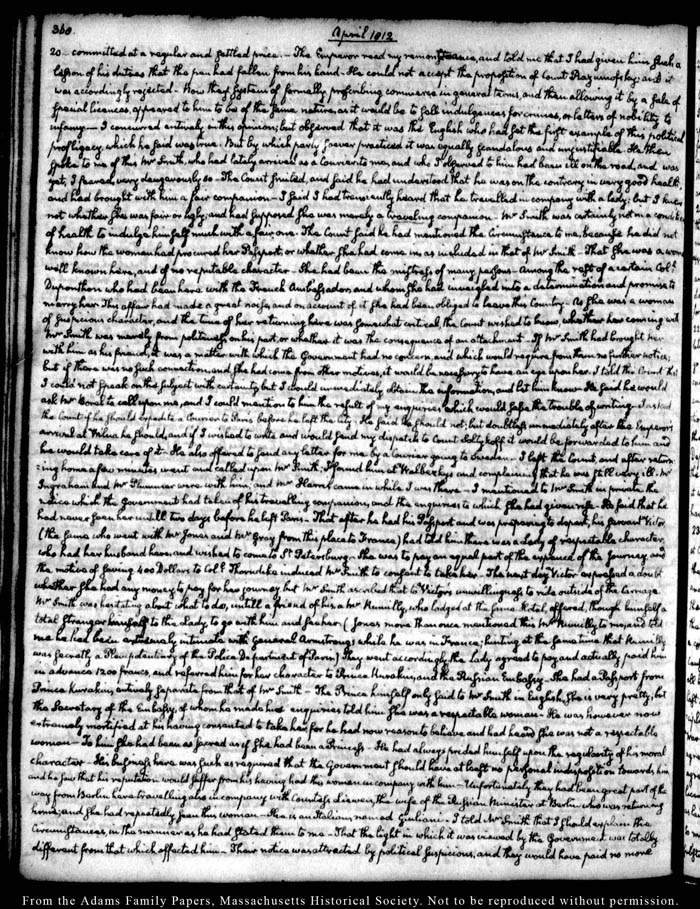 360.
April 1812
20— committed at a regular and settled price.— The Emperor read my remonstrance, and told me that I had given him such a
lesson of his duties that the pen had fallen from his hand. He could not accept the proposition of Count Razumofsky; and it
was accordingly rejected— Now this system of formally proscribing commerce in general terms, and then allowing it by a sale of
special licences, appeared to him to be of the same nature, as it would be to sell indulgences for crimes, or letters of nobility to
infamy— I concurred entirely in this opinion; but observed that it was the English who had set the first example of this political
profligacy, which he said was true. But by which party soever practiced it was equally scandalous and unjustifiable. He then
spoke to me of this Mr Smith, who had lately arrived as a Courier to me, and who I observed to him had been ill on the road, and was
yet, I feared, very dangerously so— The Count smiled, and said he had understood that he was on the contrary in very good health,
and had brought with him a fair companion— I said I had transiently heard that he travelled in company with a lady; but I knew
not whether she was fair or ugly; and had supposed she was merely a traveling companion— Mr Smith was certainly not in a condition
of health to indulge himself much with a fair one. The Count said he had mentioned the Circumstance to me, because he did not
know how the woman had procured her Passport, or whether she had come in as included in that of Mr Smith— That she was a woman
well known here, and of no reputable character— She had been the mistress of many persons— Among the rest of a certain Coll.
Duponthon who had been here with the French Ambassador, and whom she had inveigled into a determination and promise to
marry her. This affair had made a great noise, and on account of it she had been obliged to leave this Country— As she was a woman
of suspicious character, and the time of her returning here was somewhat critical, the Count wished to know, whether her coming with
Mr Smith was merely from politeness on his part, or whether it was the consequence of an attachment. If Mr Smith had brought her
with him as his friend, it was a matter with which the Government had no concern, and which would require from them no further notice;
but if there was no such connection, and she had come from other motives, it would be necessary to have an eye upon her. I told the Count that
I could not speak on this subject with certainty but I could immediately obtain the information, and let him know. He said he would
ask Mr Bonal to call upon me, and I could mention to him the result of my enquiries which would save the trouble of writing. I asked
the Count if he should expedite a Courier to Paris before he left the City. He said he should not; but doubtless immediately after the Emperor's
arrival at Wilna he should, and if I wished to write and would send my dispatch to Count Soltykoff it would be forwarded to him and
he would take care of it— He also offered to send any letter for me by a Courier going to Sweden. I left the Count, and after return
=ing home a few minutes went and called upon Mr Smith. I found him at and complaining that he was still very ill. Mr
Ingraham and Mr Plummer were with him; and Mr Harris came in while I was there— I mentioned to Mr Smith in private the
notice which the Government had taken of his travelling companion, and the enquiries to which she had given rise. He said that he
had never seen her untill two days before he left Paris— That after he had his Passport and was preparing to depart, his servant Victor
(the same who went with Mr Jones and Mr Gray from this place to France) had told him there was a Lady of respectable character,
who had her husband here, and wished to come to St. Petersburg. She was to pay an equal part of the expences of the Journey, and
the notice of saving 400 Dollars to Coll. Thorndike induced Mr Smith to consent to take her. The next day Victor expressed a doubt
whether she had any money to pay for her journey but Mr Smith ascribed that to Victor's unwillingness to ride outside of the Carriage
Mr Smith was hesitating about what to do, untill a friend of his a Mr Numilly, who lodged at the same Hotel, offered, though himself a
total stranger himself to the Lady, to go with him and see her (Jones more than once mentioned this Mr Numilly to me, and told
me he had been extremely intimate with General Armstrong, while he was in France, hinting at the same time that Numilly
was secretly a Plenipotentiary of the Police Department of Paris) They went accordingly, the Lady agreed to pay and actually paid him
in advance 1200 francs, and referred him for her character to Prince Kurakin, and the Russian Embassy. She had a Passport from
Prince Kurakin, entirely separate from that of Mr Smith— The Prince himself only said to Mr Smith in English, she is very pretty; but
the Secretary of the Embassy, of whom he made his enquiries told him she was a respectable woman— He was however now
extremely mortified at his having consented to take her, for he had now reason to believe and had heard she was not a respectable
woman— To him she had been as sacred as if she had been a Princess— He had always prided himself upon the regularity of his moral
character— His business here was such as required that the Government should have at least no personal indisposition towards him
and he saw that his reputation would suffer from his having had this woman in company with him— Unfortunately they had been great part of the
way from Berlin here travelling also in company with Countess Lieven, the wife of the Russian Minister at Berlin who was returning
home; and she had repeatedly seen this woman— He is an Italian, named Giuliani— I told Mr Smith that I should explain the
Circumstances, in the manner as he had stated them to me— That the light in which it was viewed by the Government was totally
different from that which affected him— Their notice was attracted by political suspicions, and they would have paid no more
From the Adams Family Papers, Massachusetts Historical Society. Not to be reproduced without permission.